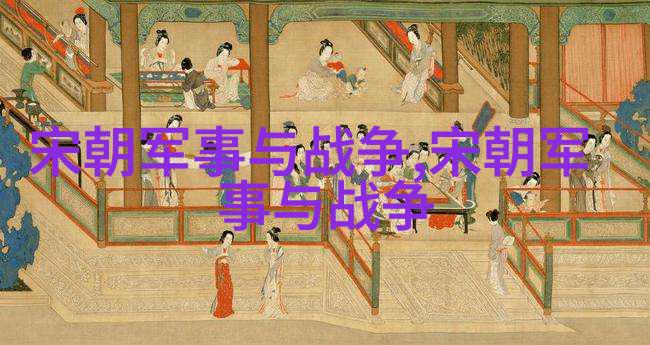 宋朝军事与战争,宋朝军
事与战争